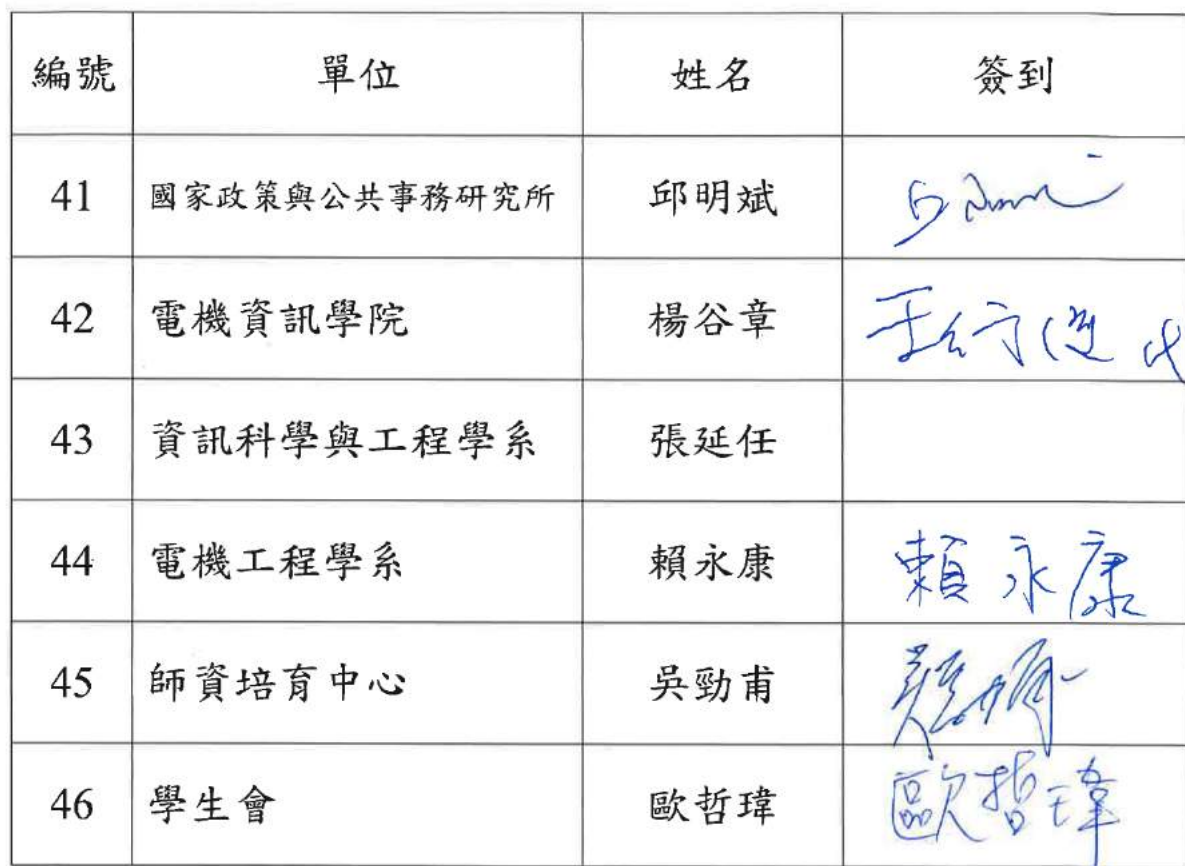 編號 單位 姓名 簽到
41 國家政策與公共事務研究所 邱明斌
42 電機資訊學院 楊谷章 代
43 資訊科學與工程學系 張延任
44 電機工程學系 賴永康 賴永康
45 師資培育中心 吳勁甫
46 學生會 歐哲瑋 歐哲瑋